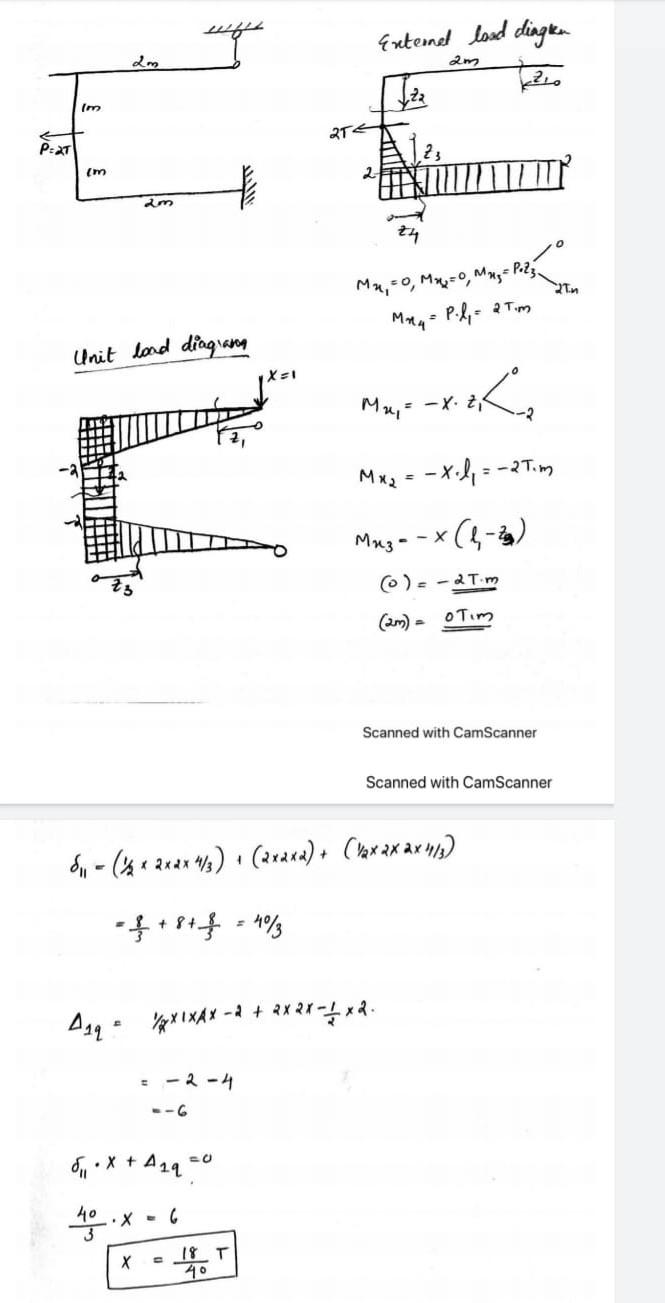 External load diagram
2m
2m
1m
P=2T
1m
2m
z1
z2
2T
z3
2
2
z4
Mx1=0, Mx2=0, Mx3= P.z3
0
2T.m
Mx4 = P.l1 = 2 T.m
Unit load diagram
X=1
z1
-2
z2
-2
z3
Mx1 = -X. z1
0
-2
Mx2 = -X.l1 = -2T.m
Mx3 = -X (l1-z3)
(0) = -2T.m
(2m) = 0T.m
Scanned with CamScanner
Scanned with CamScanner
δ11 = (1/2 x 2x2x 4/3) + (2x2x2) + (1/2x 2x 2x 4/3)
= 8/3 + 8 + 8/3 = 40/3
Δ1q = 1/2x1x2x -2 + 2x2x -1/2 x2.
= -2 -4
= -6
δ11 . X + Δ1q = 0
40/3 . X = 6
X = 18/40 T